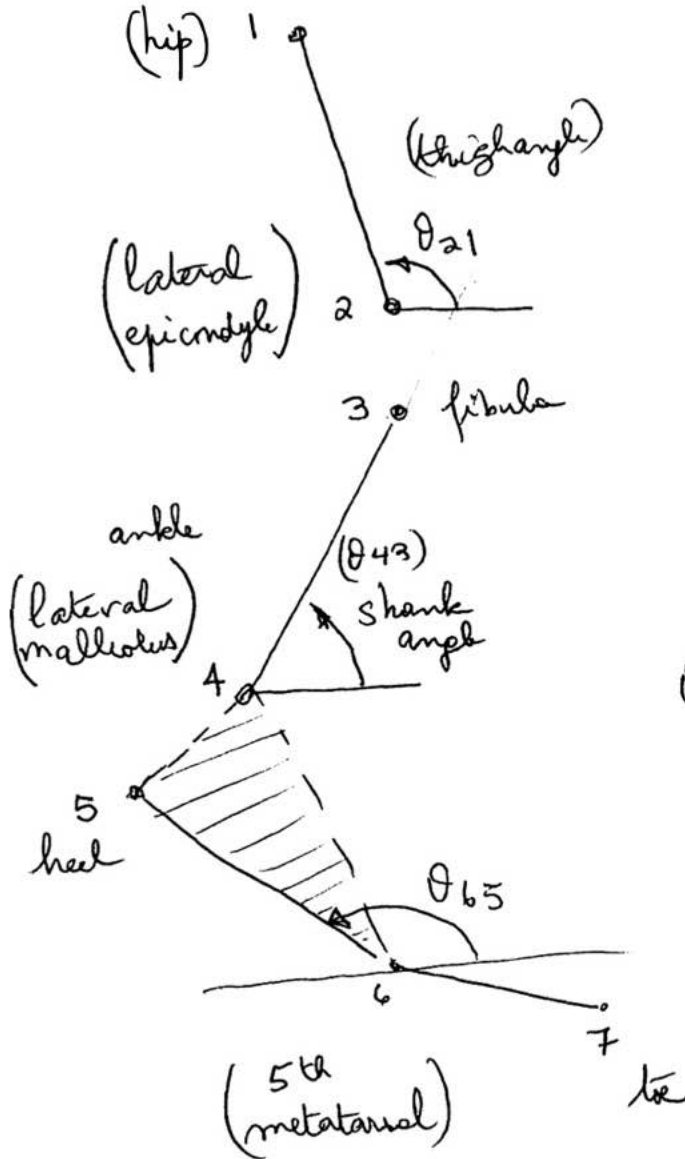 (hip) 1
(thigh angle)
θ21
(lateral
epicondyle)
2
3 fibula
ankle
(θ43)
(lateral
malliolus)
shank
angle
4
5
heel
θ65
6
7
(5th
metatarsal)
toe